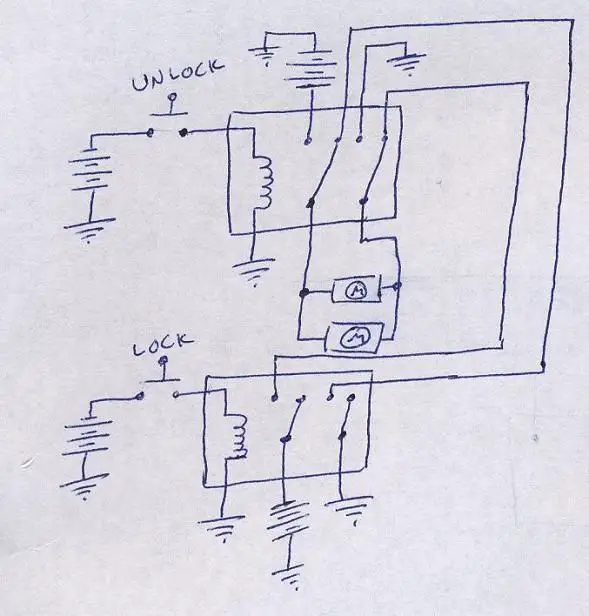 UNLOCK
M
M
LOCK